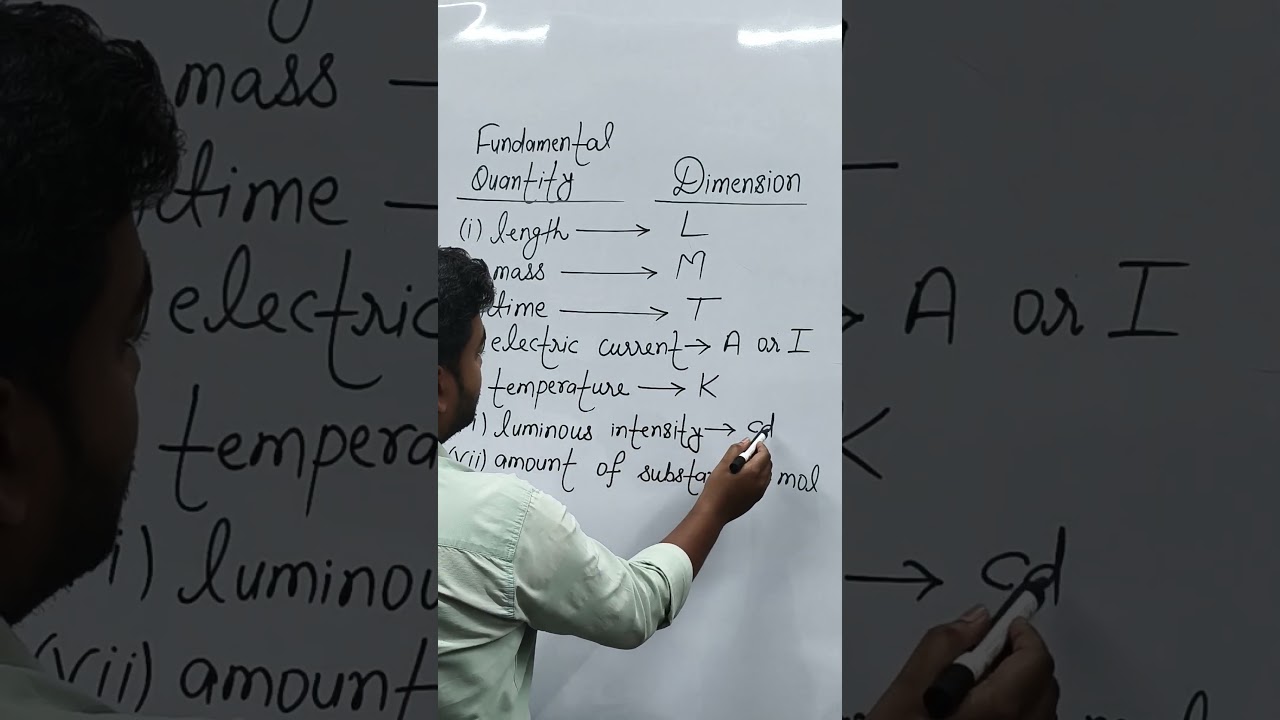 Fundamental
Quantity Dimension
(i) length → L
mass → M
time → T
electric current → A or I
temperature → K
i) luminous intensity → cd
(vii) amount of mol